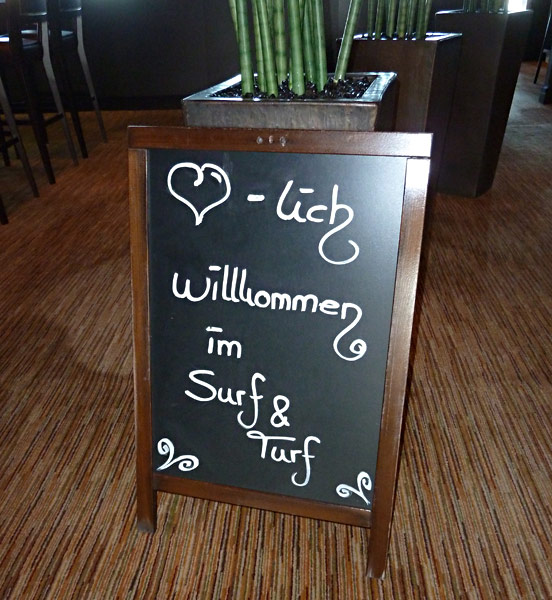 ♡-lich
willkommen
im
Surf &
Turf